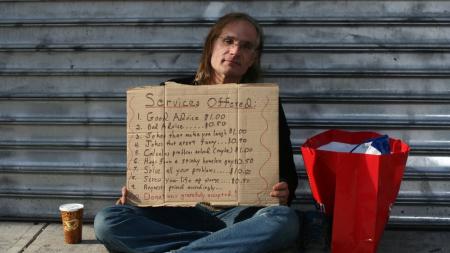 Services Offered:
1. Good Advice $1.00
2. Bad Advice ...... $0.50
3. Jokes that make you laugh $1.00
4. Jokes that aren't funny .. $0.50
5. Calculus problem solved (maybe) $1.00
6. Hugs from a stinky homeless guy $0.50
7. Solve all your problems ... $1.00
8. Screw your life up worse .... $0.50
9. Request priced accordingly...
Donations gratefully accepted